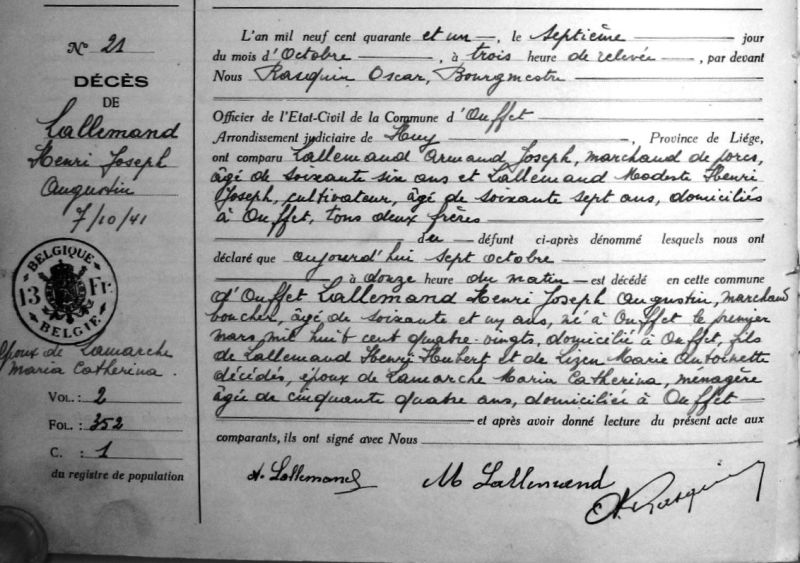 N° 21
DÉCÈS
DE
Lallemand
Henri Joseph
Augustin
7/10/41
BELGIQUE
13 Fr.
BELGIË
époux de Lamarche
Maria Catherina.
VOL. : 2
FOL. : 352
C. : 1
du registre de population
L'an mil neuf cent quarante et un, le septième jour
du mois d'Octobre, à trois heure de relevée, par devant
Nous Rasquin Oscar, Bourgmestre
Officier de l'Etat-Civil de la Commune d'Ouffet
Arrondissement judiciaire de Huy, Province de Liége,
ont comparu Lallemand Armand Joseph, marchand de porcs,
âgé de soixante six ans et Lallemand Modeste Henri
Joseph, cultivateur, âgé de soixante sept ans, domiciliés
à Ouffet, tous deux frères
du défunt ci-après dénommé lesquels nous ont
déclaré que aujourd'hui sept octobre
à douze heure du matin est décédé en cette commune
d'Ouffet Lallemand Henri Joseph Augustin, marchand
boucher, âgé de soixante et un ans, né à Ouffet le premier
mars mil huit cent quatre-vingts, domicilié à Ouffet, fils
de Lallemand Henri Houbert et de Lizen Marie Antoinette
décédés, époux de Lamarche Maria Catherina, ménagère
âgée de cinquante quatre ans, domiciliée à Ouffet
et après avoir donné lecture du présent acte aux
comparants, ils ont signé avec Nous
A. Lallemand
M Lallemand
O. Rasquin